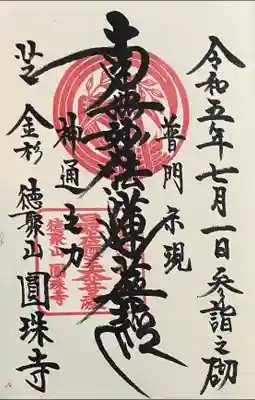 令和五年七月一日 参詣之砌
普門示現
南無妙法蓮華経
神通之力
金杉 徳聚山 圓珠寺
徳聚山 圓珠寺